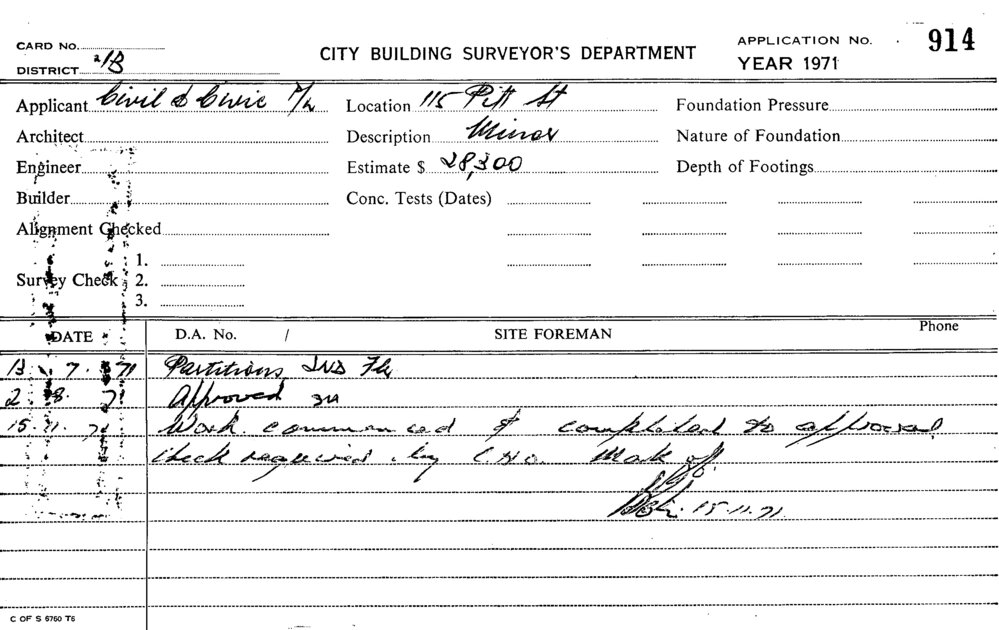 CARD No.
CITY BUILDING SURVEYOR'S DEPARTMENT
APPLICATION No. 914
DISTRICT 2/B
YEAR 1971
Applicant Civil & Civic P/L Location 115 Pitt St Foundation Pressure
Architect Description Minor Nature of Foundation
Engineer Estimate $ 28,300 Depth of Footings
Builder Conc. Tests (Dates)
Alignment Checked
1.
Survey Check 2.
3.
DATE D.A. No. / SITE FOREMAN Phone
13 . 7 . 71 Partitions 2nd Flr
2 . 8 . 71 Approved
15 . 11 . 71 Work commenced & completed to approved
check required by C.H.O. Mark off.
15.11.71
C OF S 6760 T6